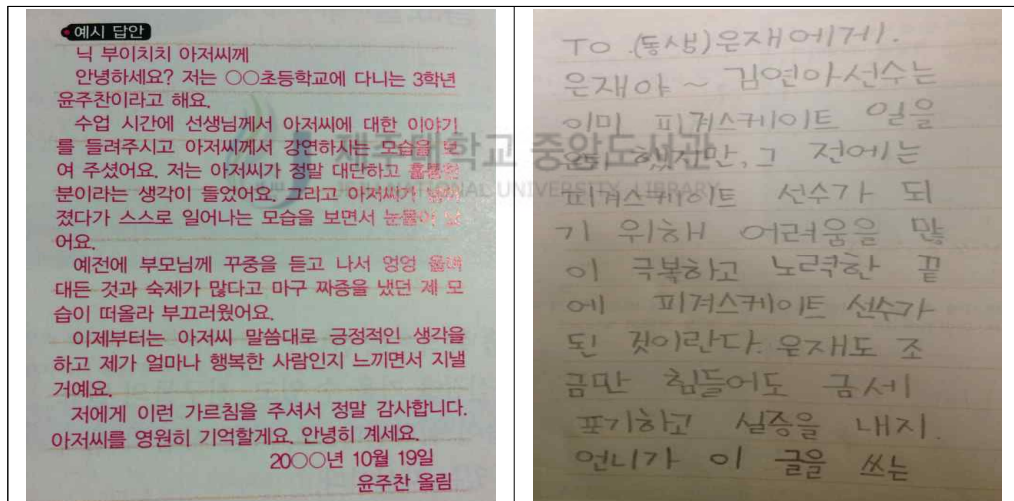 예시 답안
닉 부이치치 아저씨께
안녕하세요? 저는 ○○초등학교에 다니는 3학년
윤주찬이라고 해요.
수업 시간에 선생님께서 아저씨에 대한 이야기
를 들려주시고 아저씨께서 강연하시는 모습을 보
여 주셨어요. 저는 아저씨가 정말 대단하고 훌륭한
분이라는 생각이 들었어요. 그리고 아저씨가
졌다가 스스로 일어나는 모습을 보면서 눈물이 났
어요.
예전에 부모님께 꾸중을 듣고 나서 엉엉 울며
대든 것과 숙제가 많다고 마구 짜증을 냈던 제 모
습이 떠올라 부끄러웠어요.
이제부터는 아저씨 말씀대로 긍정적인 생각을
하고 제가 얼마나 행복한 사람인지 느끼면서 지낼
거예요.
저에게 이런 가르침을 주셔서 정말 감사합니다.
아저씨를 영원히 기억할게요. 안녕히 계세요.
20○○년 10월 19일
윤주찬 올림
To.(동생)은재에게.
은재야~ 김연아선수는
이미 피겨스케이트 일을
했지만, 그 전에는
피겨스케이트 선수가 되
기 위해 어려움을 많
이 극복하고 노력한 끝
에 피겨스케이트 선수가
된 것이란다. 은재도 조
금만 힘들어도 금세
포기하고 실증을 내지.
언니가 이 글을 쓰는
제주대학교 중앙도서관
NATIONAL UNIVERSITY LIBRARY